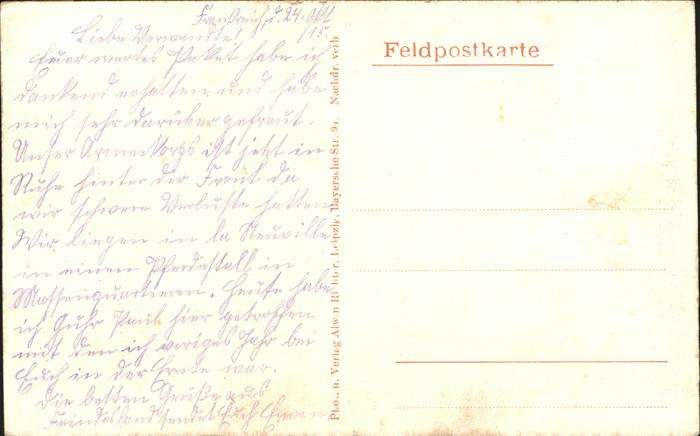 Frankreich, d. 24. Okt
/15.
Liebe Verwandte!
Euer wertes Paket habe ich
dankend erhalten und habe
mich sehr darüber gefreut.
Unser Armeekorps ist jetzt in
Ruhe hinter der Front da
wir schwere Verluste hatten
Wir liegen in la Neuville
in einem Pferdestall in
Massenquartieren. Heute habe
ich Guhr Paul hier getroffen
mit den ich voriges Jahr bei
Euch in der Ernte war.
Die besten Grüße aus
Feindesland sendet Euch
Feldpostkarte
Pho.. u. Verlag Leipzig, Bayersche Str. 94. Nachdr. verb